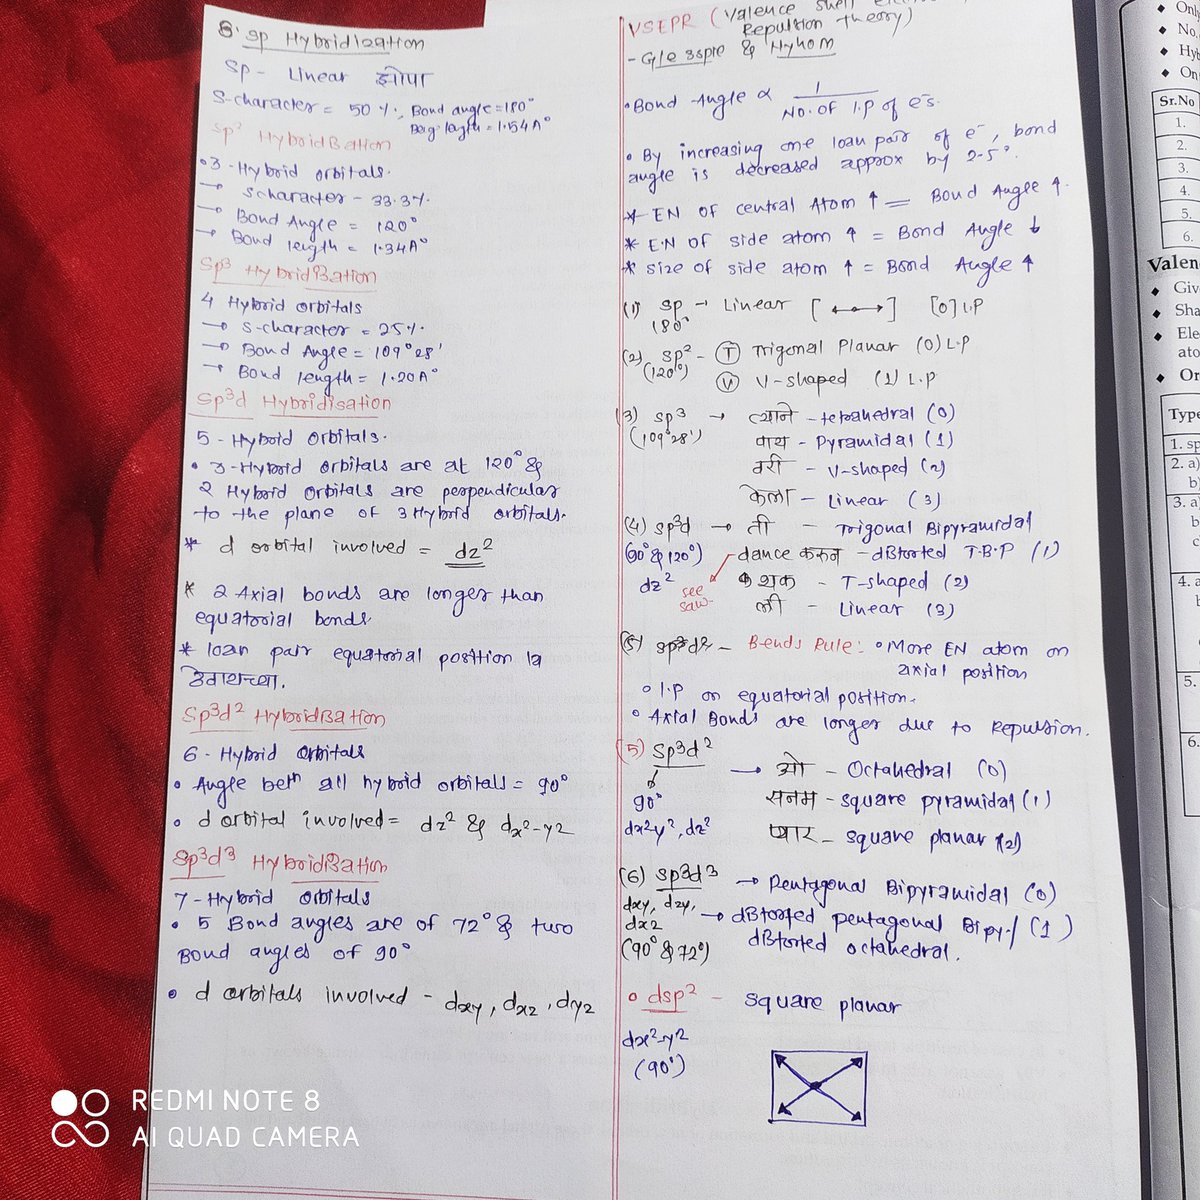 8. sp Hybridization
Sp - Linear झोपा
S-character = 50%, Bond angle = 180°
length = 1.54A°
sp² Hybridisation
• 3-Hybrid orbitals.
→ Scharacter - 33.3%.
→ Bond Angle = 120°
→ Bond length = 1.34A°
Sp³ Hybridisation
4 Hybrid orbitals
→ S-character = 25%.
→ Bond Angle = 109°28'
→ Bond length = 1.20A°
Sp³d Hybridisation
5 - Hybrid orbitals.
• 3-Hybrid orbitals are at 120° &
2 Hybrid orbitals are perpendicular
to the plane of 3 Hybrid orbitals.
* d orbital involved = dz²
* 2 Axial bonds are longer than
equatorial bonds
* loan pair equatorial position la
Sp³d² Hybridisation
6 - Hybrid orbitals
• Angle betⁿ all hybrid orbitals = 90°
• d orbital involved = dz² & dx²-y2
Sp³d³ Hybridisation
7 - Hybrid orbitals
• 5 Bond angles are of 72° & two
Bond angles of 90°
• d orbitals involved - dxy, dxz, dyz
VSEPR (Valence shell
Repulsion theory)
- Gillespie & Nyhom
• Bond Angle ∝ 1
No. of l.p of e⁻s.
• By increasing one loan pair of e⁻, bond
angle is decreased approx by 2.5°.
* EN of central Atom ↑ = Bond Angle ↑.
* E.N of side atom ↑ = Bond Angle ↓
* size of side atom ↑ = Bond Angle ↑
(1) sp → Linear [0] l.p
180°
(2) sp² - (T) Trigonal Planar (0) L.P
(120°)
(V) V-shaped (1) L.P
(3) sp³ → त्याने - tetrahedral (0)
(109°28') पाय - Pyramidal (1)
वरी - V-shaped (2)
केला - Linear (3)
(4) sp³d → ती - Trigonal Bipyramidal
(90° & 120°) dance करून - distorted T.B.P (1)
dz² see saw थक - T-shaped (2)
ली - Linear (3)
(5) sp³d² - Bends Rule: • More EN atom on
axial position
• l.p on equatorial position.
• Axial Bonds are longer due to Repulsion.
(5) Sp³d² → ओ - Octahedral (0)
90° सनम - square pyramidal (1)
dx²y², dz² प्यार - square planar (2)
(6) Sp³d³ → Pentagonal Bipyramidal (0)
dxy, dzy,
dxz → distorted pentagonal Bipy./ (1)
(90° & 72°) distorted octahedral.
• dsp² - square planar
dx²-y²
(90°)
Onl
No.
Hyb
On
Sr.No
1.
2.
3.
4.
5.
6.
Valen
Giv
Sha
Ele
ato
Or
Type
1. sp
2. a)
b)
3. a)
b
c
4. a
5.
6.
REDMI NOTE 8
AI QUAD CAMERA